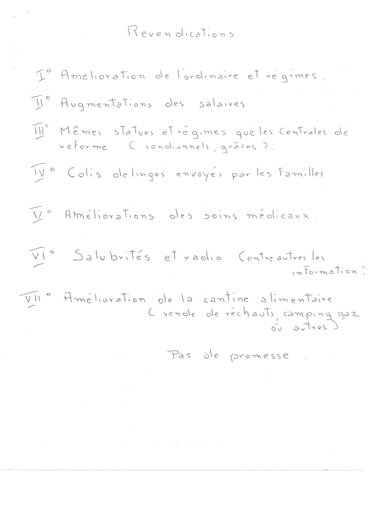 Revendications
I° Amélioration de l'ordinaire et régimes.
II° Augmentations des salaires
III° Mêmes statues et régimes que les Centrales de
reforme ( condionnels, grâces ).
IV° Colis de linges envoyés par les familles
V° Améliorations des soins médicaux.
VI° Salubrités et radio Contre autres les
information :
VII° Amélioration de la cantine alimentaire
( vende de réchauts, camping gaz
ou autres )
Pas de promesse .